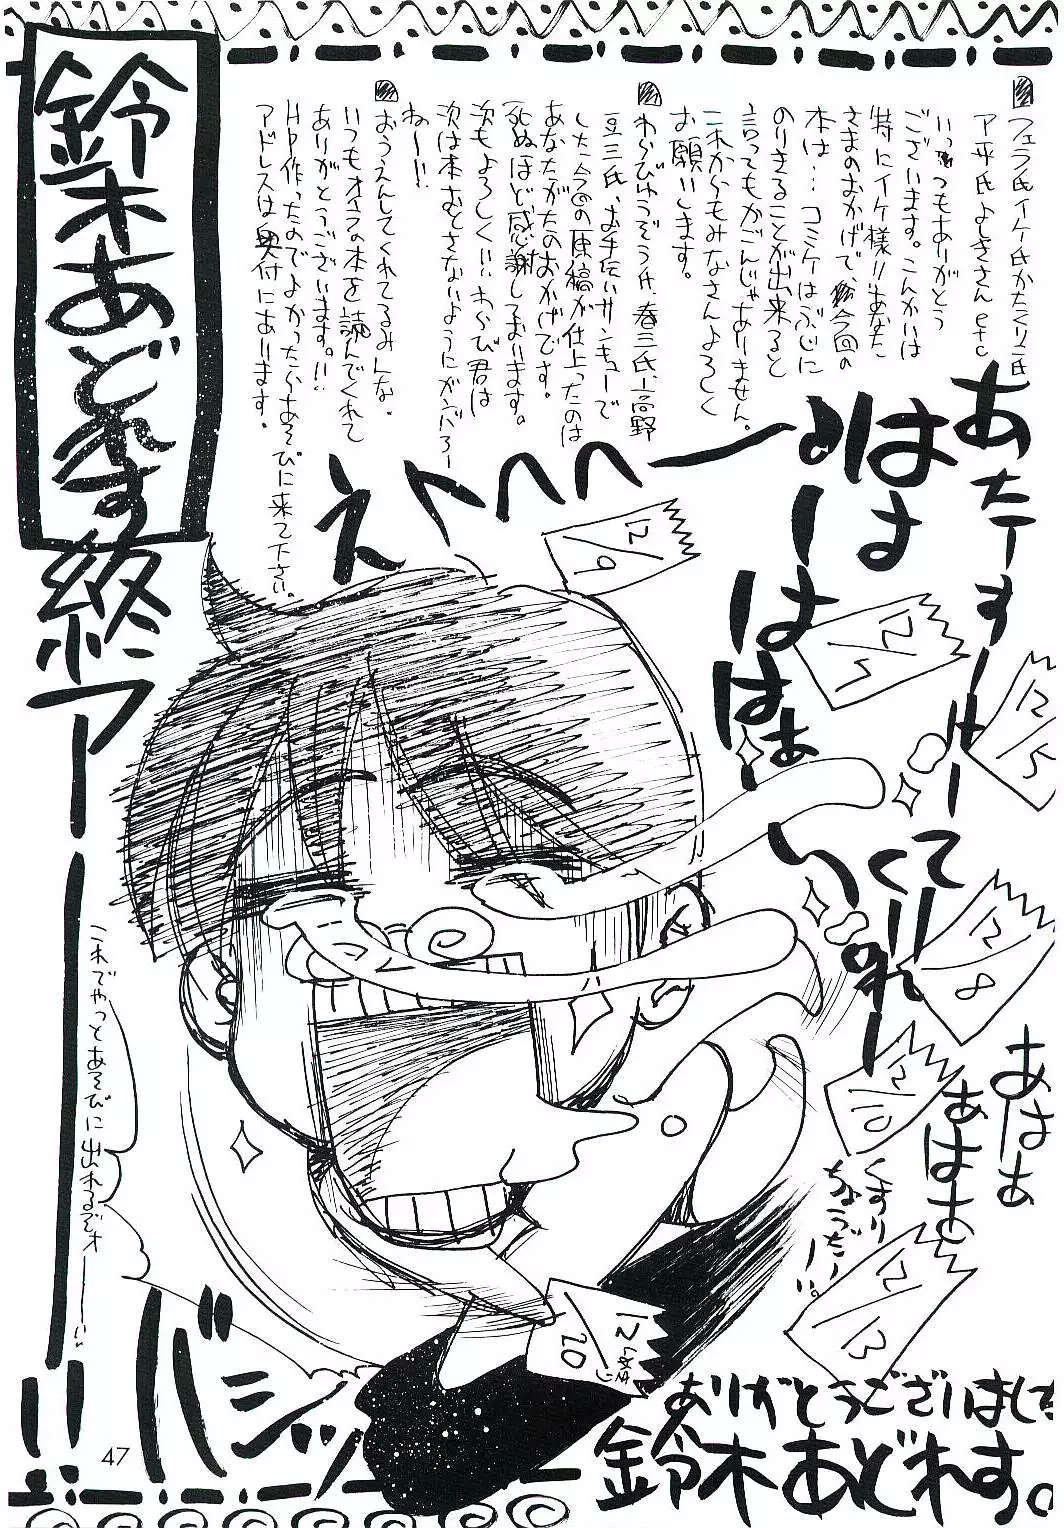 フェラ氏イケ氏かたくり氏
ア平氏よしきさんetc
いつもありがとう
ございます。こんかいは
特にイケ様!!あなた
さまのおかげで今回の
本は…コミケはぶじに
のりきることが出来ると
言ってもかごんじゃありません。
これからもみなさんよろしく
お願いします。
わらびゅうぞう氏、春三氏、高野
豆三氏、お手伝いサンキューで
した今回の原稿が仕上ったのは
あなたがたのおかげです。
死ぬほど感謝しております。
次もよろしくいいわらび君は
次は本おとさないようにがんばろー
ねー!!
おうえんしてくれてるみんな、
いつもオイラの本を読んでくれて
ありがとうございます。!!
HP作ったのでよかったらあそびに来て下さい。
アドレスは奥付にあります。
鈴木あどれす
終アー!!
えへへへー
あたーすーけー
てーくれー
いのー
ははは
はーはは
はぁ
12/9
12/5
12/5
12/8
12/10
12/13
12しめきり/20
あはぁ
あはぁ
くすり
ちょうだーい。
これでやっとあそびに出れるぞオーー!!
バシッ
ありがとうございました
鈴木あどれす。
47